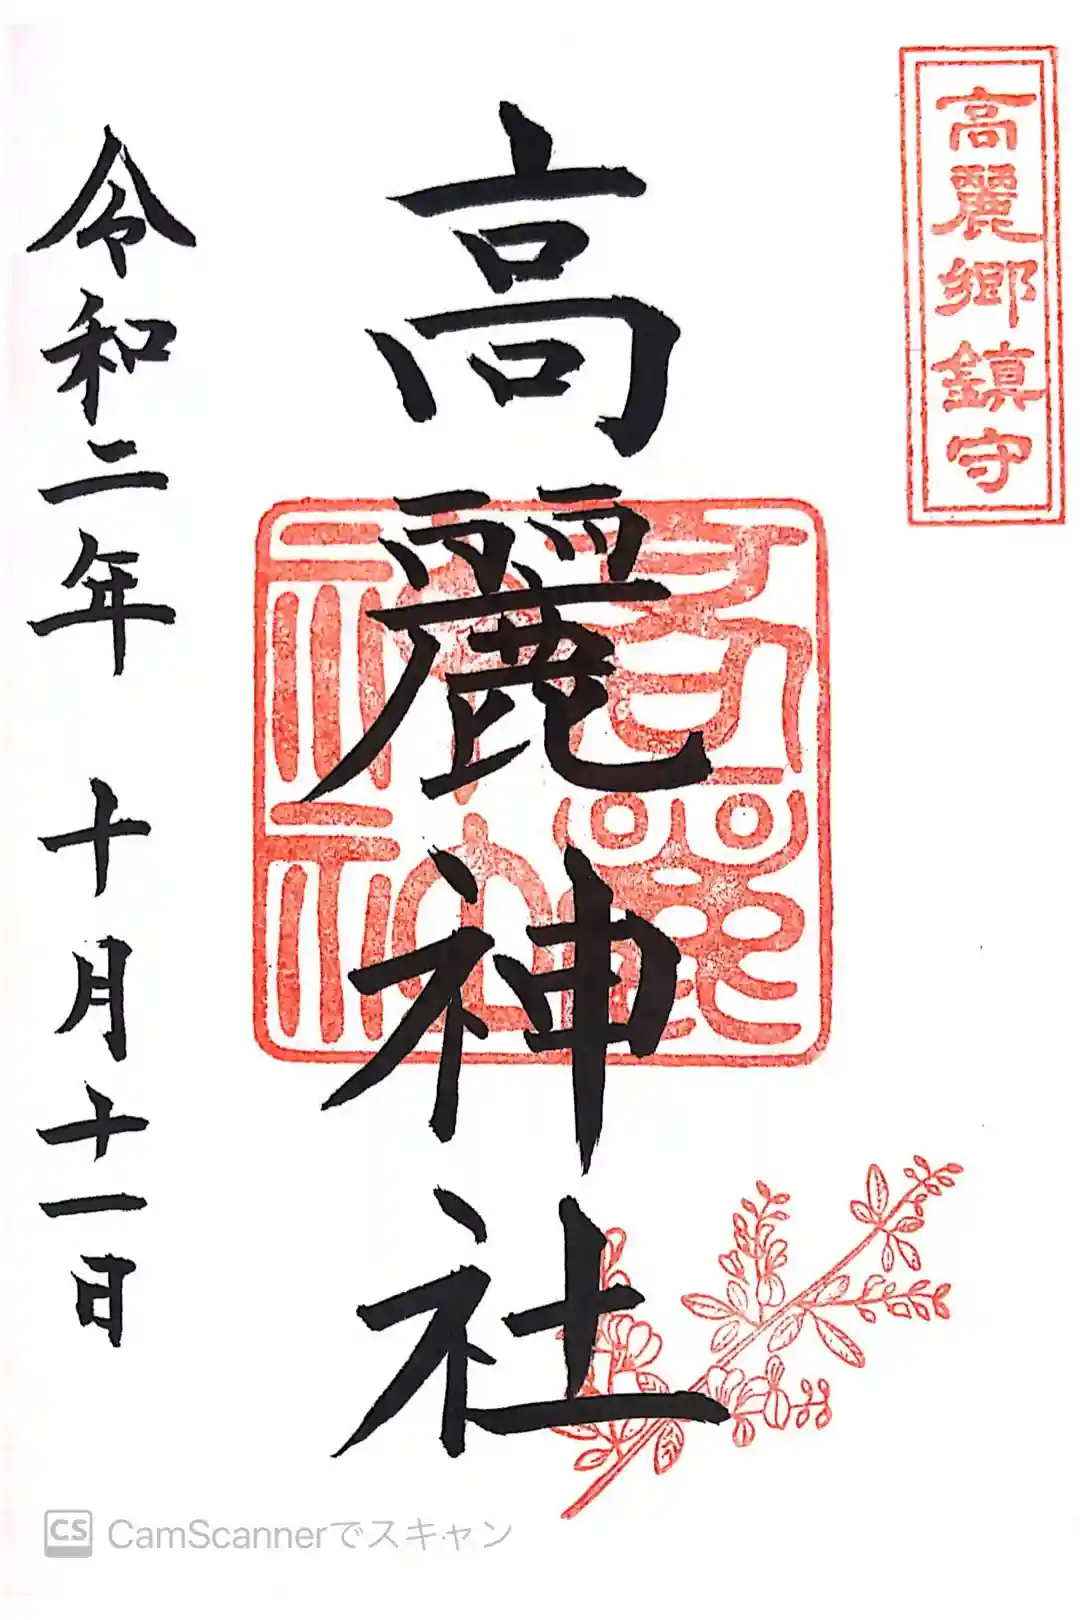 高麗郷鎮守
高麗神社
高麗神社
令和二年 十月十一日
CS CamScannerでスキャン